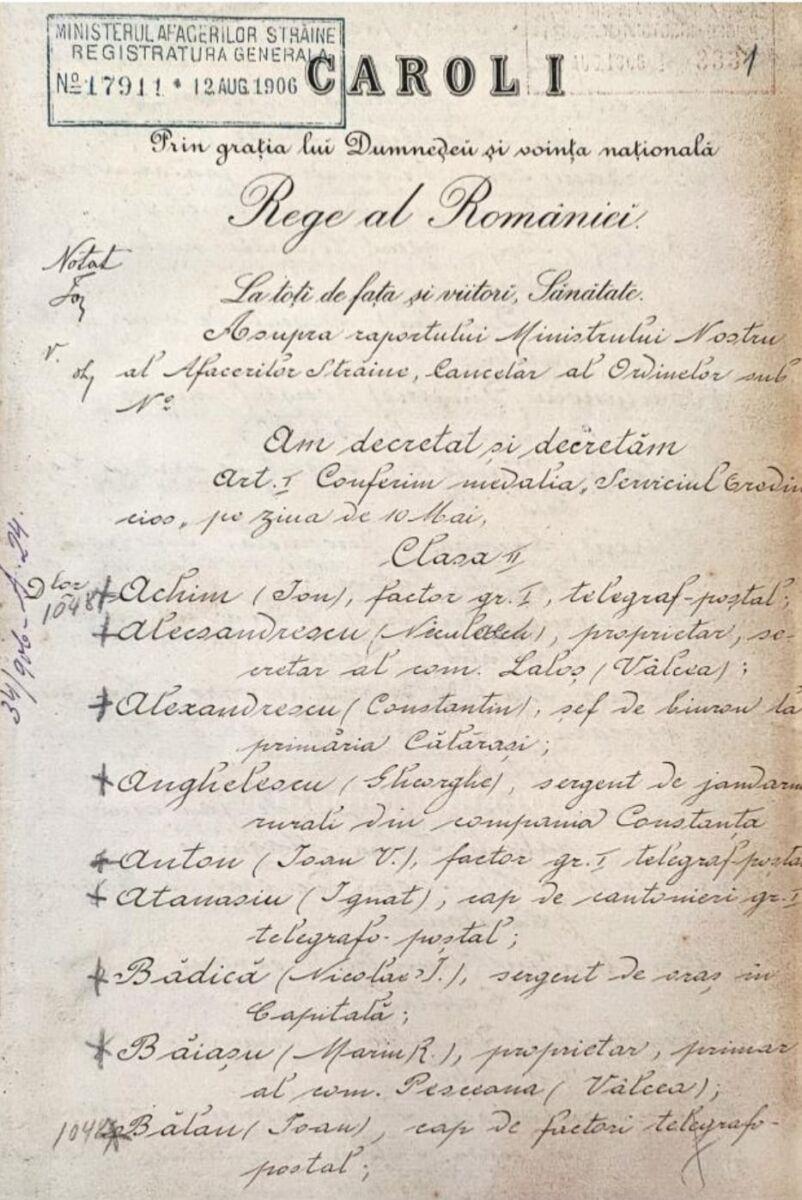 MINISTERUL AFACERILOR STRĂINE
REGISTRATURA GENERALA
No 17911 * 12 AUG. 1906
1
CAROL I
Prin grația lui Dumnedeŭ și voința națională
Rege al României.
Notat
La toți de față și viitori, Sănătate.
Asupra raportului Ministrului Nostru
al Afacerilor Străine, Cancelar al Ordinelor sub
No
Am decretat și decretăm
Art. I Conferim medalia „Serviciul Credin
cios„ pe ziua de 10 Mai,
Clasa II
Dlor
1048
Achim (Ion), factor gr. I, telegraf-postal;
Alecsandrescu (Niculae), proprietar, se-
cretar al com. Laloș (Vâlcea);
Alexandrescu (Constantin), șef de birou la
primăria Călărași;
Anghelescu (Gheorghe), sergent de jandarm
rurali din compania Constanța
Anton (Ioan V.), factor gr. I telegraf-poștal
Atanasiu (Ignat), cap de cantonieri gr. I
telegrafo-poștal;
Bădică (Nicolae I.), sergent de oraș in
Capitală;
Băiașu (Marin R.), proprietar, primar
al com. Pesceana (Vâlcea);
Bălan (Ioan), cap de factori telegrafo-
postal;